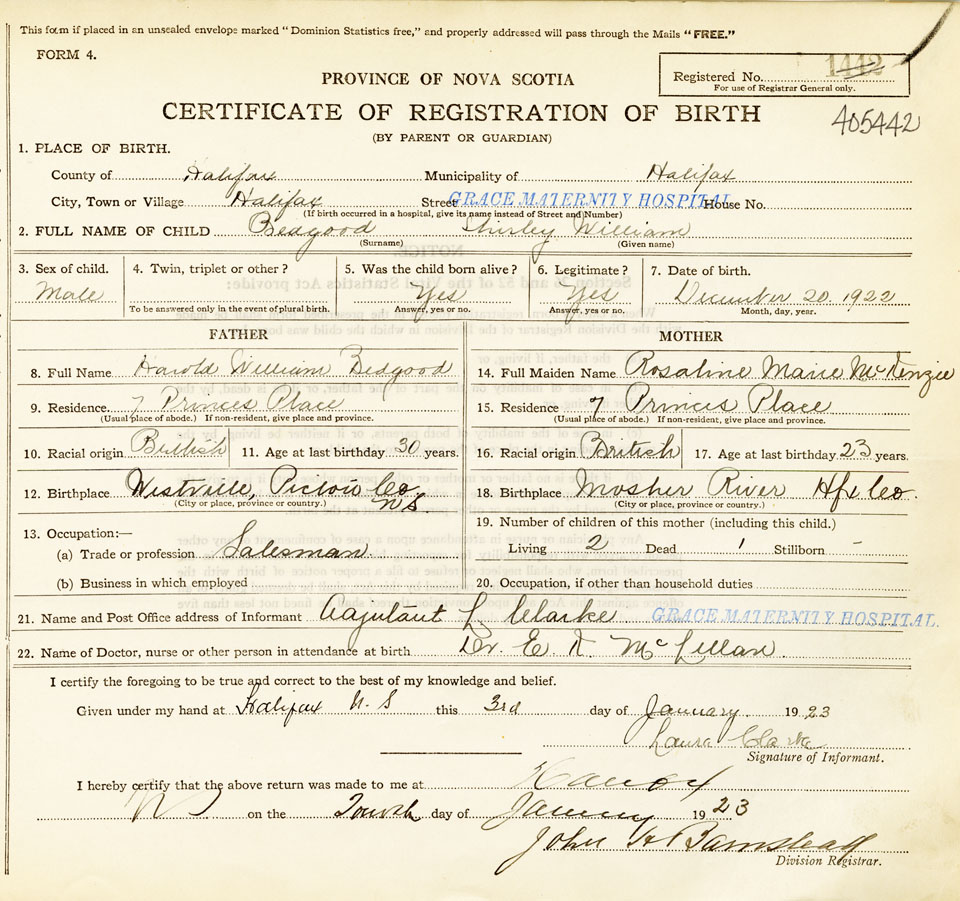 This form if placed in an unsealed envelope marked "Dominion Statistics free," and properly addressed will pass through the Mails "FREE."
FORM 4.
1442
Registered No.
For use of Registrar General only.
PROVINCE OF NOVA SCOTIA
CERTIFICATE OF REGISTRATION OF BIRTH
405442
(BY PARENT OR GUARDIAN)
1. PLACE OF BIRTH.
County of Halifax Municipality of Halifax
City, Town or Village Halifax Street GRACE MATERNITY HOSPITAL House No.
(If birth occurred in a hospital, give its name instead of Street and Number)
2. FULL NAME OF CHILD Bedgood Shirley William
(Surname) (Given name)
3. Sex of child. 4. Twin, triplet or other? 5. Was the child born alive? 6. Legitimate? 7. Date of birth.
Male Yes Yes December 20. 1922
To be answered only in the event of plural birth. Answer, yes or no. Answer, yes or no. Month, day, year.
FATHER MOTHER
8. Full Name Harold William Bedgood 14. Full Maiden Name Rosaline Marie McKenzie
9. Residence. 7 Princes Place 15. Residence 7 Princes Place
(Usual place of abode.) If non-resident, give place and province. (Usual place of abode.) If non-resident, give place and province.
10. Racial origin British 11. Age at last birthday 30 years. 16. Racial origin British 17. Age at last birthday 23 years.
12. Birthplace Westville, Pictou Co. NS 18. Birthplace Mosher River Hfx Co.
(City or place, province or country.) (City or place, province or country.)
13. Occupation:— 19. Number of children of this mother (including this child.)
(a) Trade or profession Salesman Living 2 Dead 1 Stillborn -
(b) Business in which employed 20. Occupation, if other than household duties
21. Name and Post Office address of Informant Adjutant L. Clarke GRACE MATERNITY HOSPITAL.
22. Name of Doctor, nurse or other person in attendance at birth Dr. E. McLellan.
I certify the foregoing to be true and correct to the best of my knowledge and belief.
Given under my hand at Halifax N.S this 3rd day of January 1923
Laura Clarke
Signature of Informant.
I hereby certify that the above return was made to me at Halifax
NS on the Fourth day of January 1923
John H Barnstead
Division Registrar.